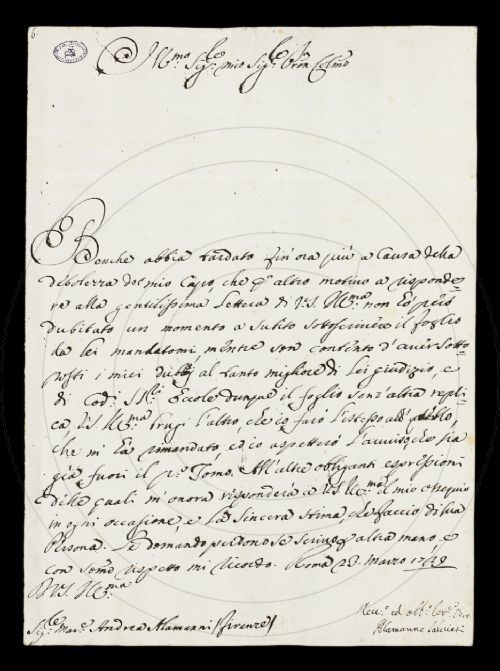 6.
Ill.mo Sig.re mio Sig.re P̃ron Col.mo
Benche abbia tardato fin' ora più a causa della
debolezza del mio Capo, che p altro motivo a risponde=
re alla gentilissima Lettera di V.S. Ill.ma non hò però
dubitato un momento a subito sottoscrivere il foglio
da lei mandatomi, mentre son contento d'aver sotto=
posti i miei dubbj al tanto migliore di lei giudizio, e
di cod: SS.ri Eccole dunque il foglio senz' altra repli=
ca V.S. Ill.ma brugi l'altro, che io farò l'istesso
che mi hà rimandato, ed io aspetterò l'auviso, che sia
già fuori il p.o Tomo. All' altre obliganti espressioni
delle quali m'onora risponderà a V.S. Ill.ma il mio ossequio
in ogni occasione, e la sincera stima, che faccio di sua
Persona. Le domando perdono se scrivo p altra mano, e
con sommo rispetto mi ricordo. Roma 23. Marzo
D V.S. Ill.ma
Sig.re Mar.e Andrea Alamanni (Firenze)
ed obb.o Serv.re
Alamanno Salviati